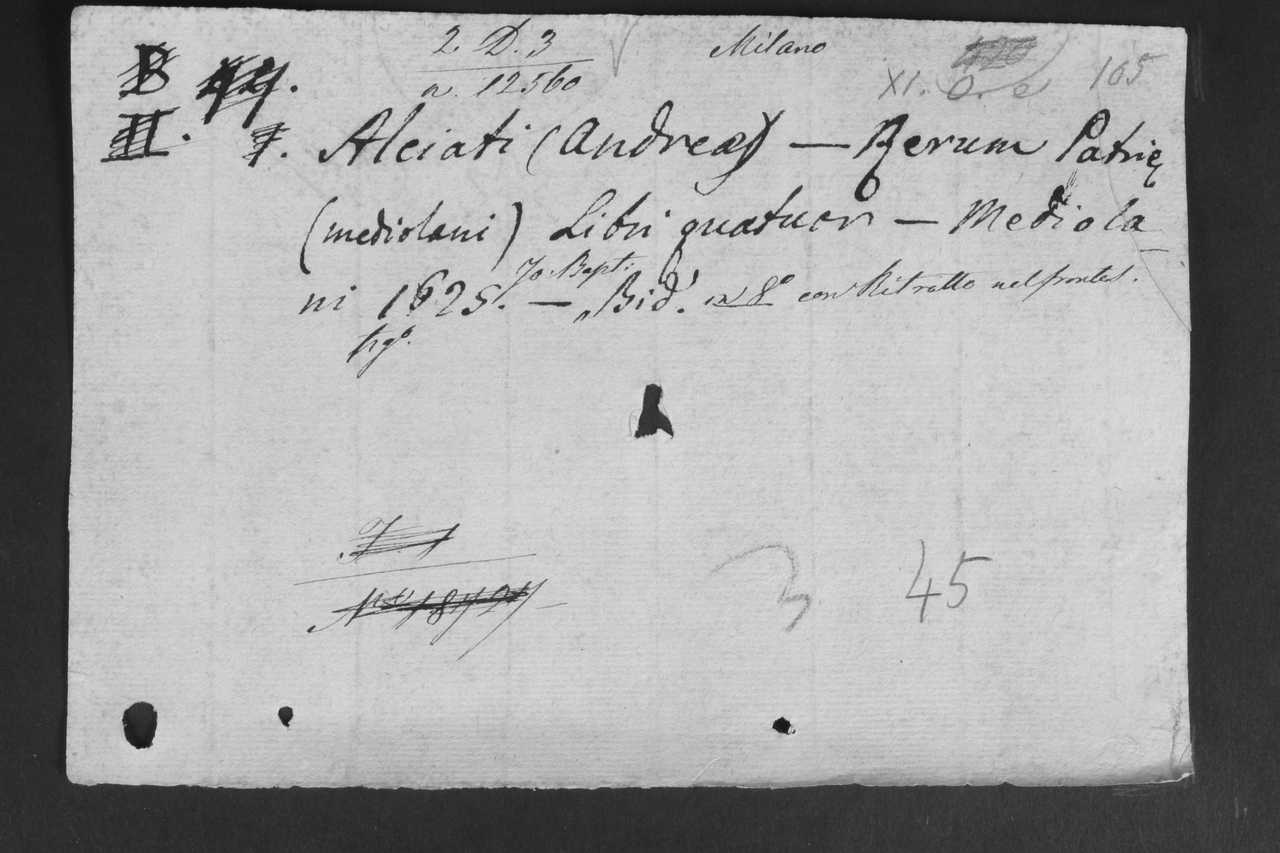 2. D. 3
Milano
a. 12560
XI. O. 165
B 44.
II. 7. Alciati (Andreæ) — Rerum Patrię
(mediolani) Libri quatuor — Mediola
ni 1625. — Jo: Bapt: Bid. in 8° con Ritratto nel frontes.
fig.°
3 45